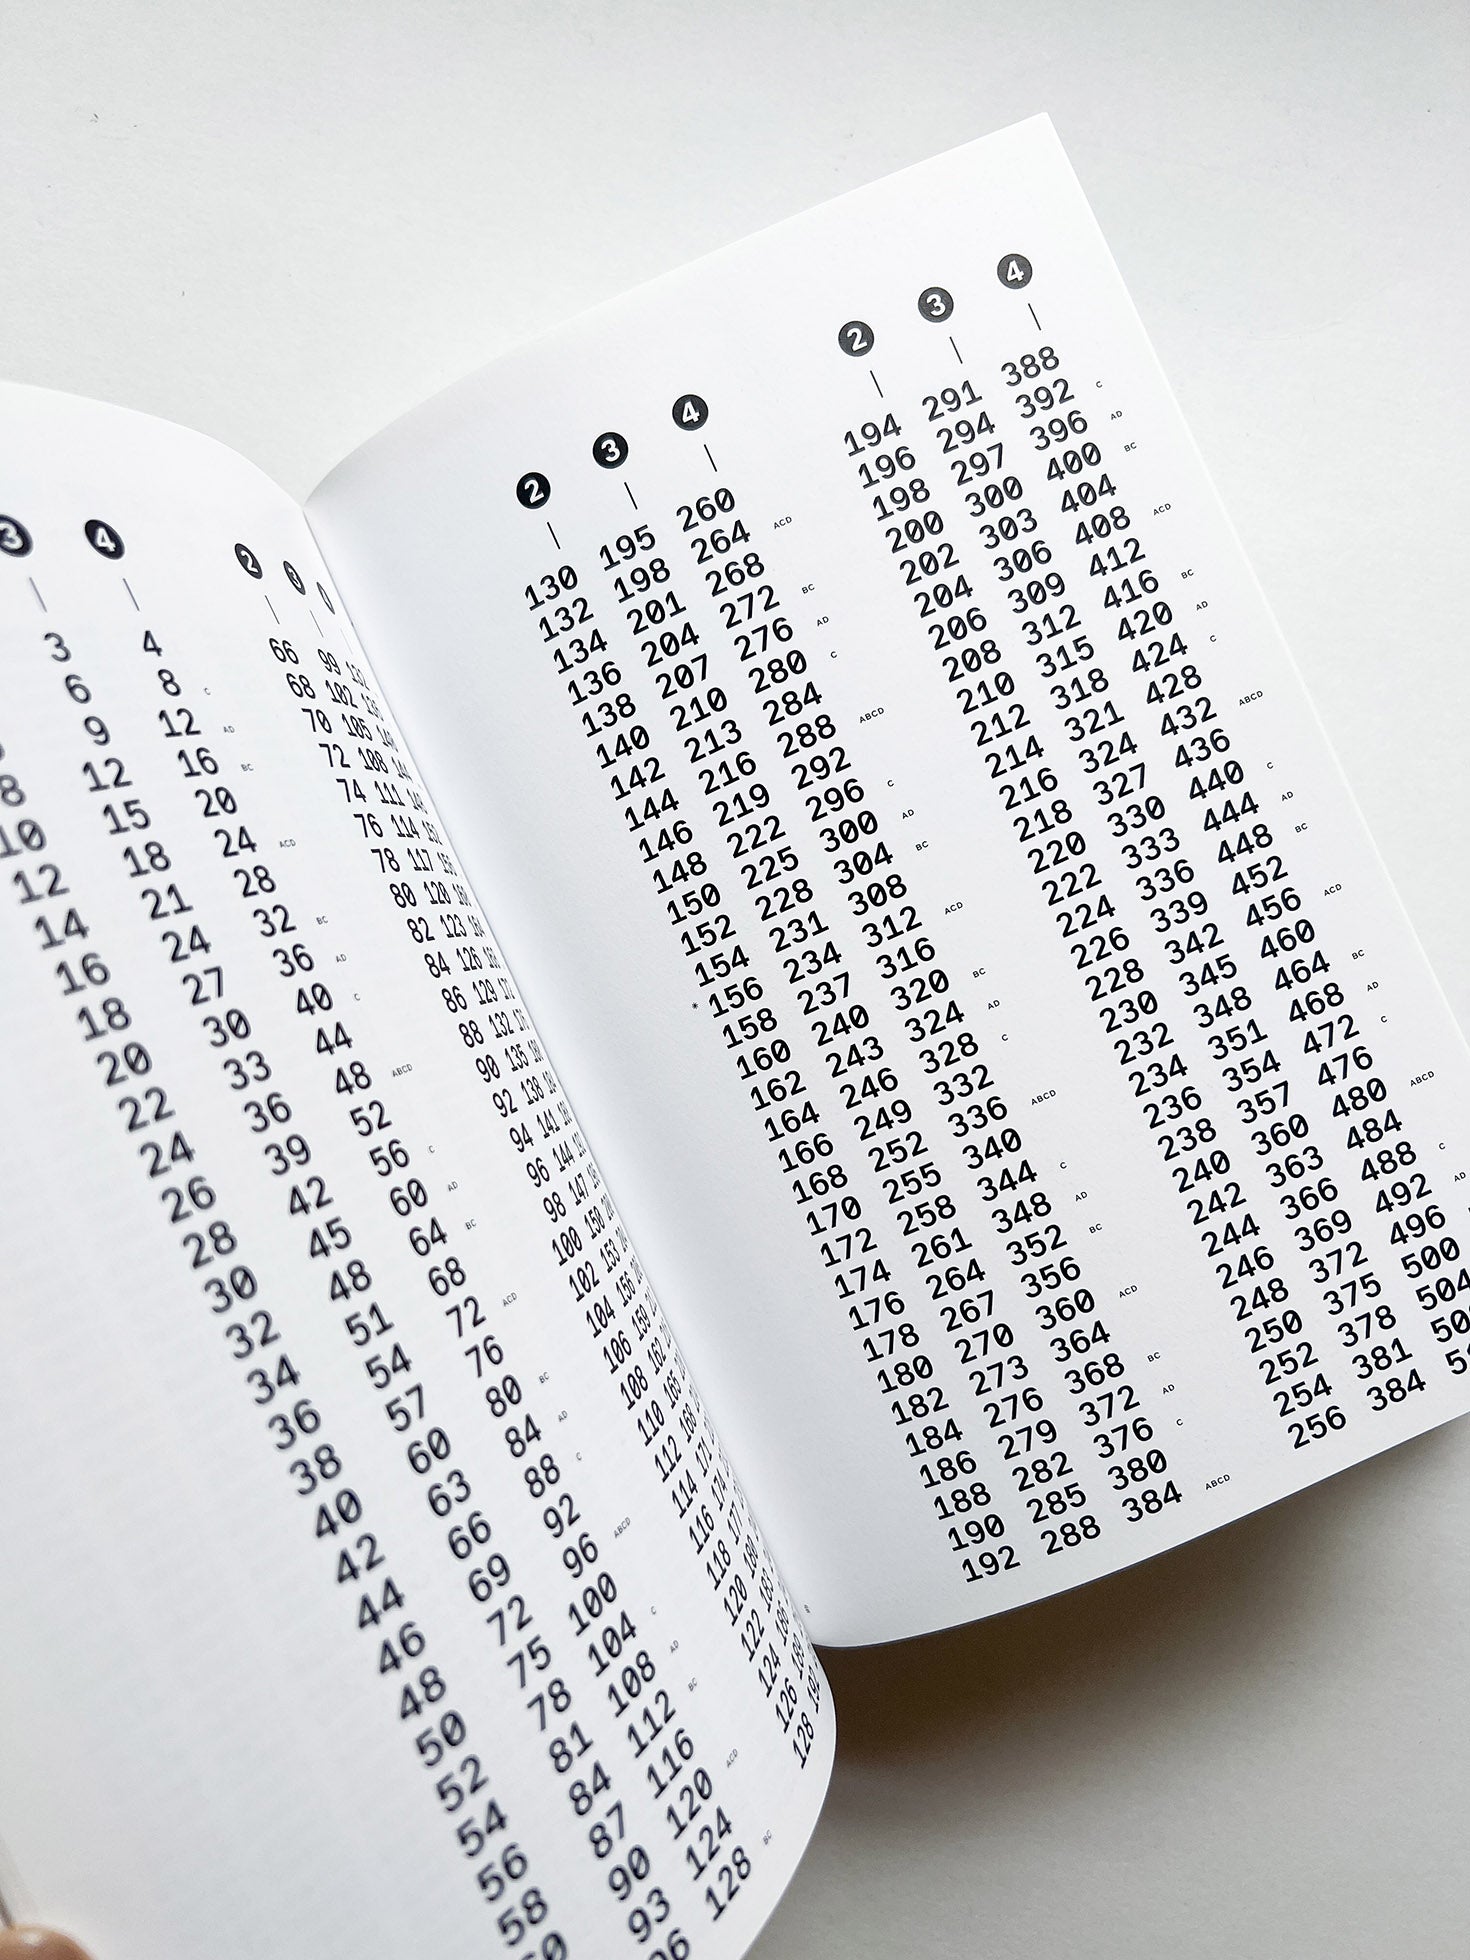 3 4
3 4
6 8 C
9 12 AD
8 12 16 BC
10 15 20
12 18 24 ACD
14 21 28
16 24 32 BC
18 27 36 AD
20 30 40 C
22 33 44
24 36 48 ABCD
26 39 52
28 42 56 C
30 45 60 AD
32 48 64 BC
34 51 68
36 54 72 ACD
38 57 76
40 60 80 BC
42 63 84 AD
44 66 88 C
46 69 92
48 72 96 ABCD
50 75 100
52 78 104 C
54 81 108 AD
56 84 112 BC
58 87 116
90 120 ACD
93 124
128 BC
2 3 4
66 99
68 102
70 105
72 108
74 111
76 114
78 117
80 120
82 123
84 126
86 129
88 132
90 135
92 138
94 141
96 144
98 147
100 150
102 153
104 156
106 159
108 162
110 165
112 168
114 171
116 174
118 177
120 180
122 183
124 186
126 189
128 192
2 3 4
130 195 260
132 198 264 ACD
134 201 268
136 204 272 BC
138 207 276 AD
140 210 280 C
142 213 284
144 216 288 ABCD
146 219 292
148 222 296 C
150 225 300 AD
152 228 304 BC
154 231 308
* 156 234 312 ACD
158 237 316
160 240 320 BC
162 243 324 AD
164 246 328 C
166 249 332
168 252 336 ABCD
170 255 340
172 258 344 C
174 261 348 AD
176 264 352 BC
178 267 356
180 270 360 ACD
182 273 364
184 276 368 BC
186 279 372 AD
188 282 376 C
190 285 380
192 288 384 ABCD
2 3 4
194 291 388
196 294 392 C
198 297 396 AD
200 300 400 BC
202 303 404
204 306 408 ACD
206 309 412
208 312 416 BC
210 315 420 AD
212 318 424 C
214 321 428
216 324 432 ABCD
218 327 436
220 330 440 C
222 333 444 AD
224 336 448 BC
226 339 452
228 342 456 ACD
230 345 460
232 348 464 BC
234 351 468 AD
236 354 472 C
238 357 476
240 360 480 ABCD
242 363 484
244 366 488 C
246 369 492 AD
248 372 496
250 375 500
252 378 504
254 381
256 384